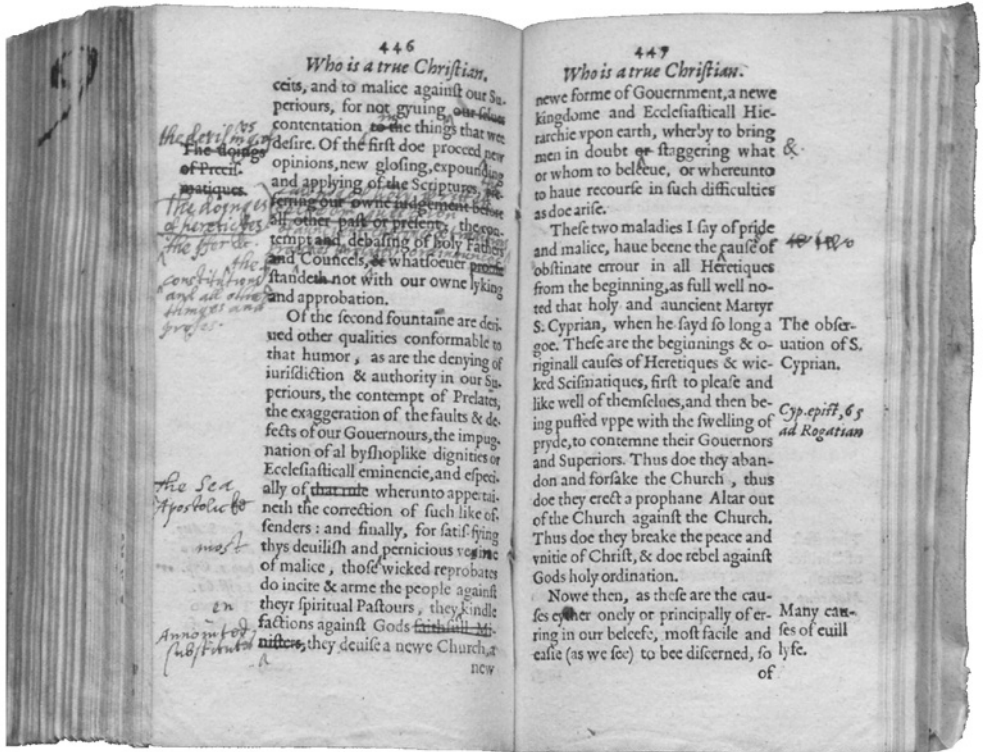 446
Who is a true Chriſtian.
ceits, and to malice againſt our Su-
periours, for not gyuing our ſelues
contentation to the things that wee
deſire. Of the firſt doe proceed new
opinions, new gloſing, expounding
and applying of the Scriptures, pre-
ferring our owne iudgement before
all other paſt or preſent, the con-
tempt and debaſing of holy Fathers
and Councels, & whatſoeuer
ſtandeth not with our owne lyking
and approbation.
Of the ſecond fountaine are deri-
ued other qualities conformable to
that humor, as are the denying of
iuriſdiction & authority in our Su-
periours, the contempt of Prelates,
the exaggeration of the faults & de-
fects of our Gouernours, the impug-
nation of al byſhoplike dignities or
Eccleſiaſticall eminencie, and eſpeci-
ally of that rule wherunto appertai-
neth the correction of ſuch like of-
fenders: and finally, for ſatiſ-fying
thys deuiliſh and pernicious
of malice, thoſe wicked reprobates
do incite & arme the people againſt
theyr ſpiritual Paſtours, they kindle
factions againſt Gods faithfull Mi-
niſters, they deuiſe a newe Church, a
new
The doings
of Preciſ-
matiques.
The doinges
of heretickes
the
constitutions
and al other
thinges
the Sea
Apostolicke
most
en
Annointed
substitutes
447
Who is a true Chriſtian.
newe forme of Gouernment, a newe
kingdome and Eccleſiaſticall Hie-
rarchie vpon earth, wherby to bring
men in doubt or ſtaggering what
or whom to beleeue, or whereunto
to haue recourſe in ſuch difficulties
as doe ariſe.
Theſe two maladies I ſay of pride
and malice, haue beene the cauſe of
obſtinate errour in all Heretiques
from the beginning, as full well no-
ted that holy and auncient Martyr
S. Cyprian, when he ſayd ſo long a
goe. Theſe are the beginnings & o-
riginall cauſes of Heretiques & wic-
ked Sciſmatiques, firſt to pleaſe and
like well of themſelues, and then be-
ing puffed vppe with the ſwelling of
pryde, to contemne their Gouernors
and Superiors. Thus doe they aban-
don and forſake the Church, thus
doe they erect a prophane Altar out
of the Church againſt the Church.
Thus doe they breake the peace and
vnitie of Chriſt, & doe rebel againſt
Gods holy ordination.
Nowe then, as theſe are the cau-
ſes eyther onely or principally of er-
ring in our beleefe, moſt facile and
eaſie (as we ſee) to bee diſcerned, ſo
of
&
The obſer-
uation of S.
Cyprian.
Cyp. epiſt, 65
ad Rogatian
Many cau-
ſes of euill
lyfe.